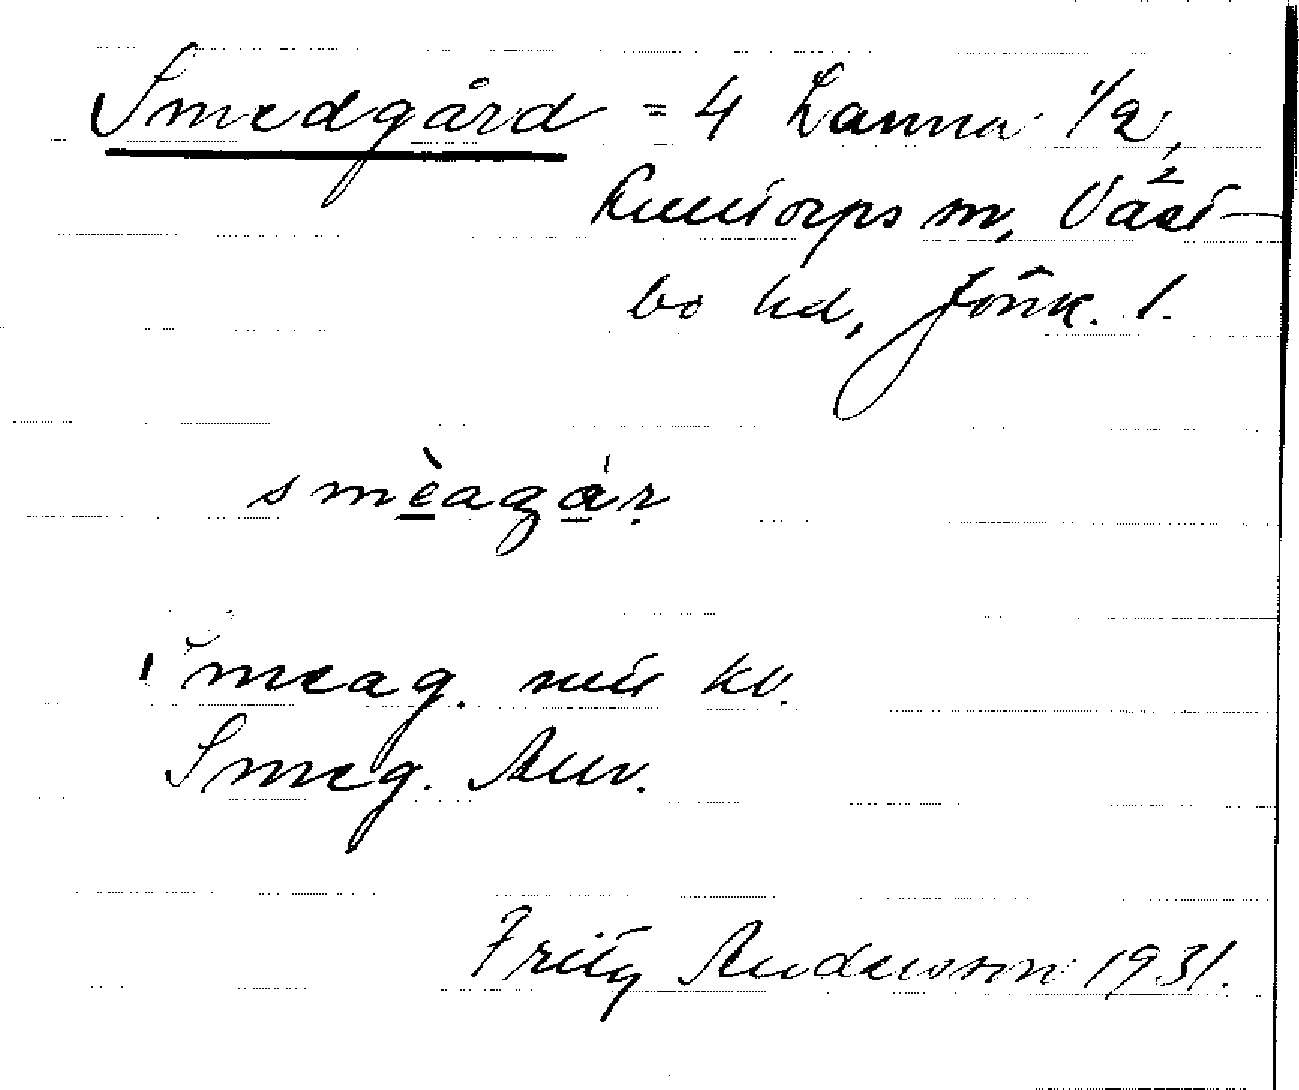 Smedgård = 4 Lanna 1/2,
Kulltorps sn, Väst-
bo hd, Jönk. l.
smèagår
Smeag.
Smeg. Anv.
Fritz Andersson 1931.